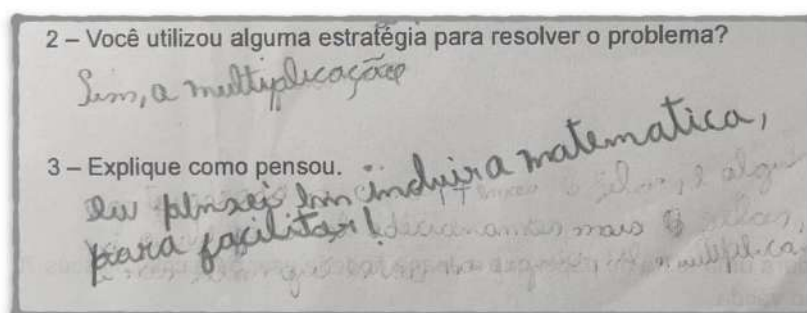 2 – Você utilizou alguma estratégia para resolver o problema?
Sim, a multiplicação
3 – Explique como pensou.
Eu pensei em induir a matematica,
para facilitar!